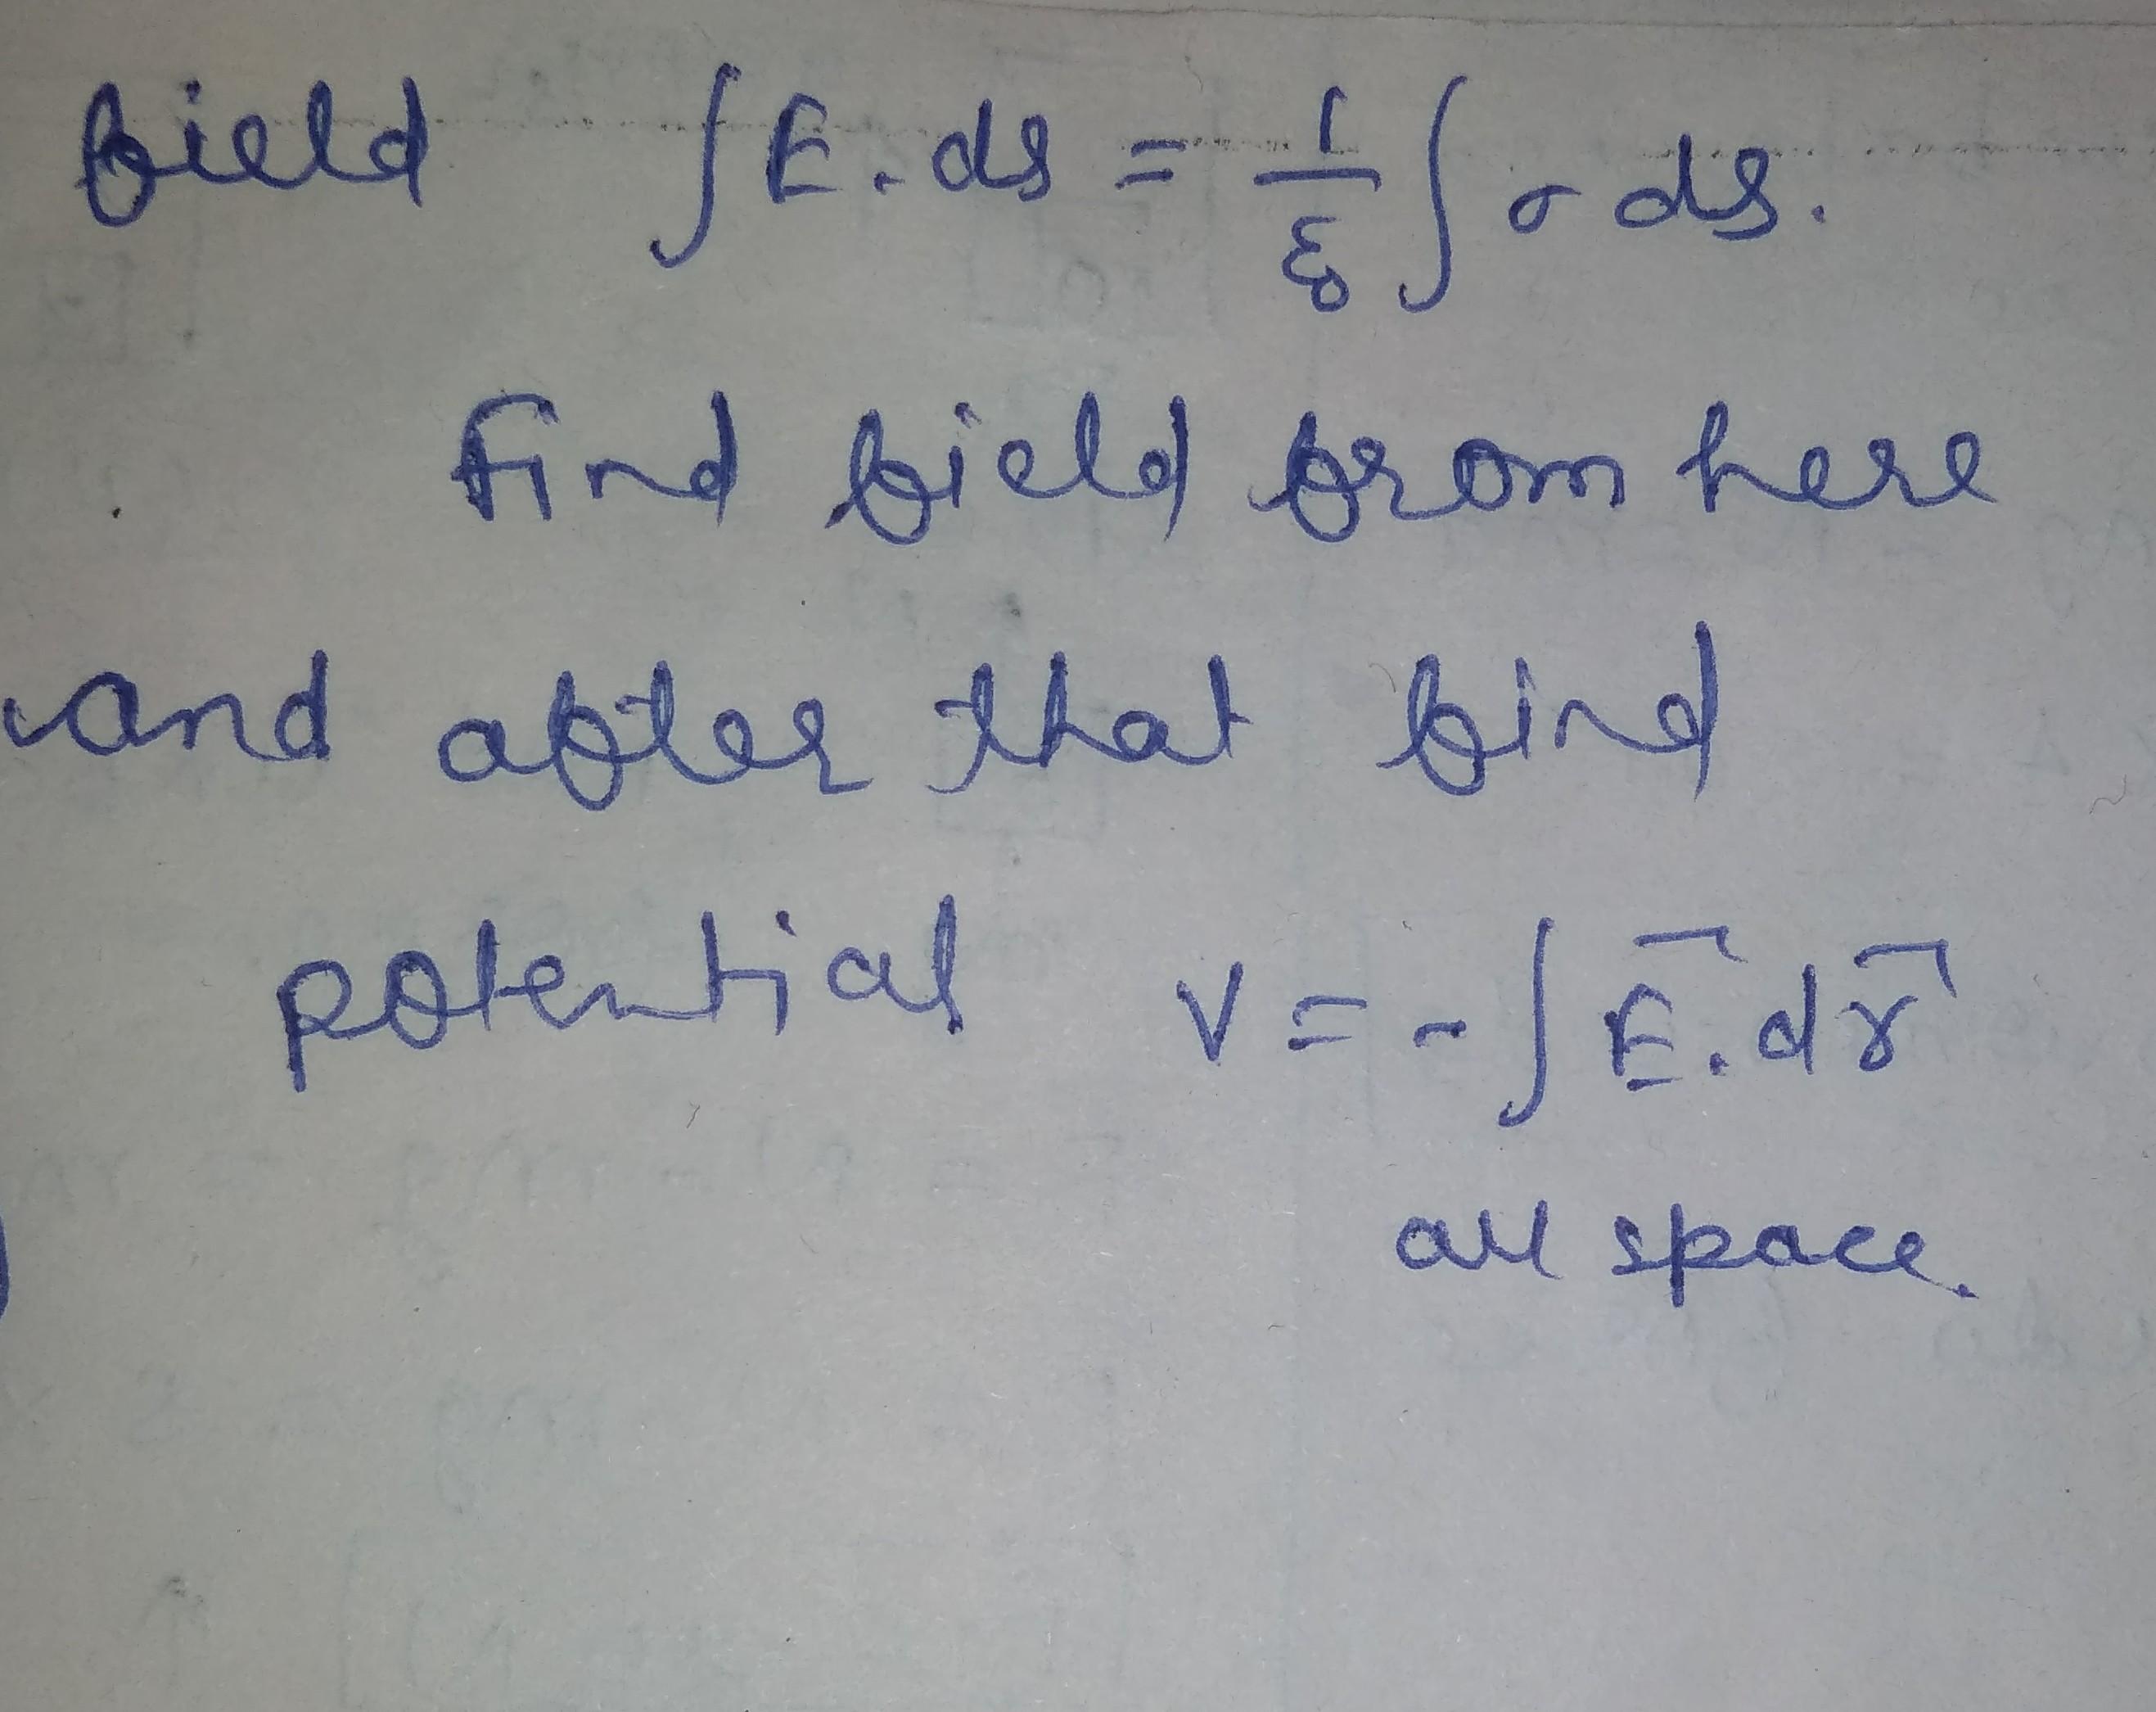 field ∫E.ds = 1/ε₀ ∫σ ds.
Find field from here
and after that find
potential V = -∫E⃗.dr⃗
all space.